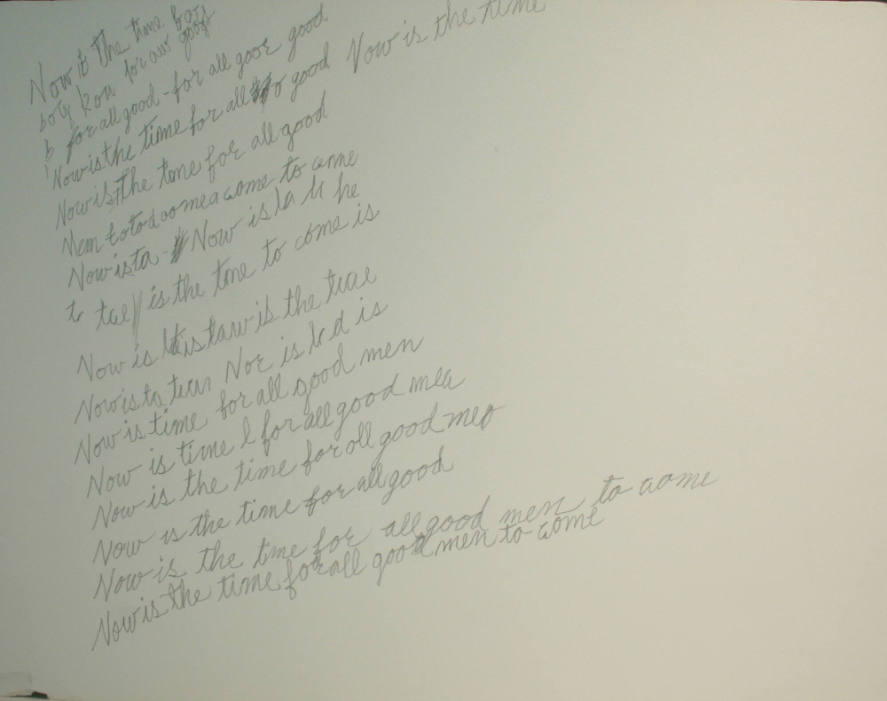 Now is the time for
boty kou for aur good
b for all good - for all goor good
Now is the time for all to good Now is the time
Now is the tone for all good
Men to to doo mea aome to came
Now is ta - Now is la li he
to tae is the tone to come is
Now is is taw is the
Now is to Nor is is
Now is time for all good men
Now is time l for all good mea
Now is the time for oll good meo
Now is the time for all good
Now is the tme for all good men to aome
Now is the time for all good men to aome